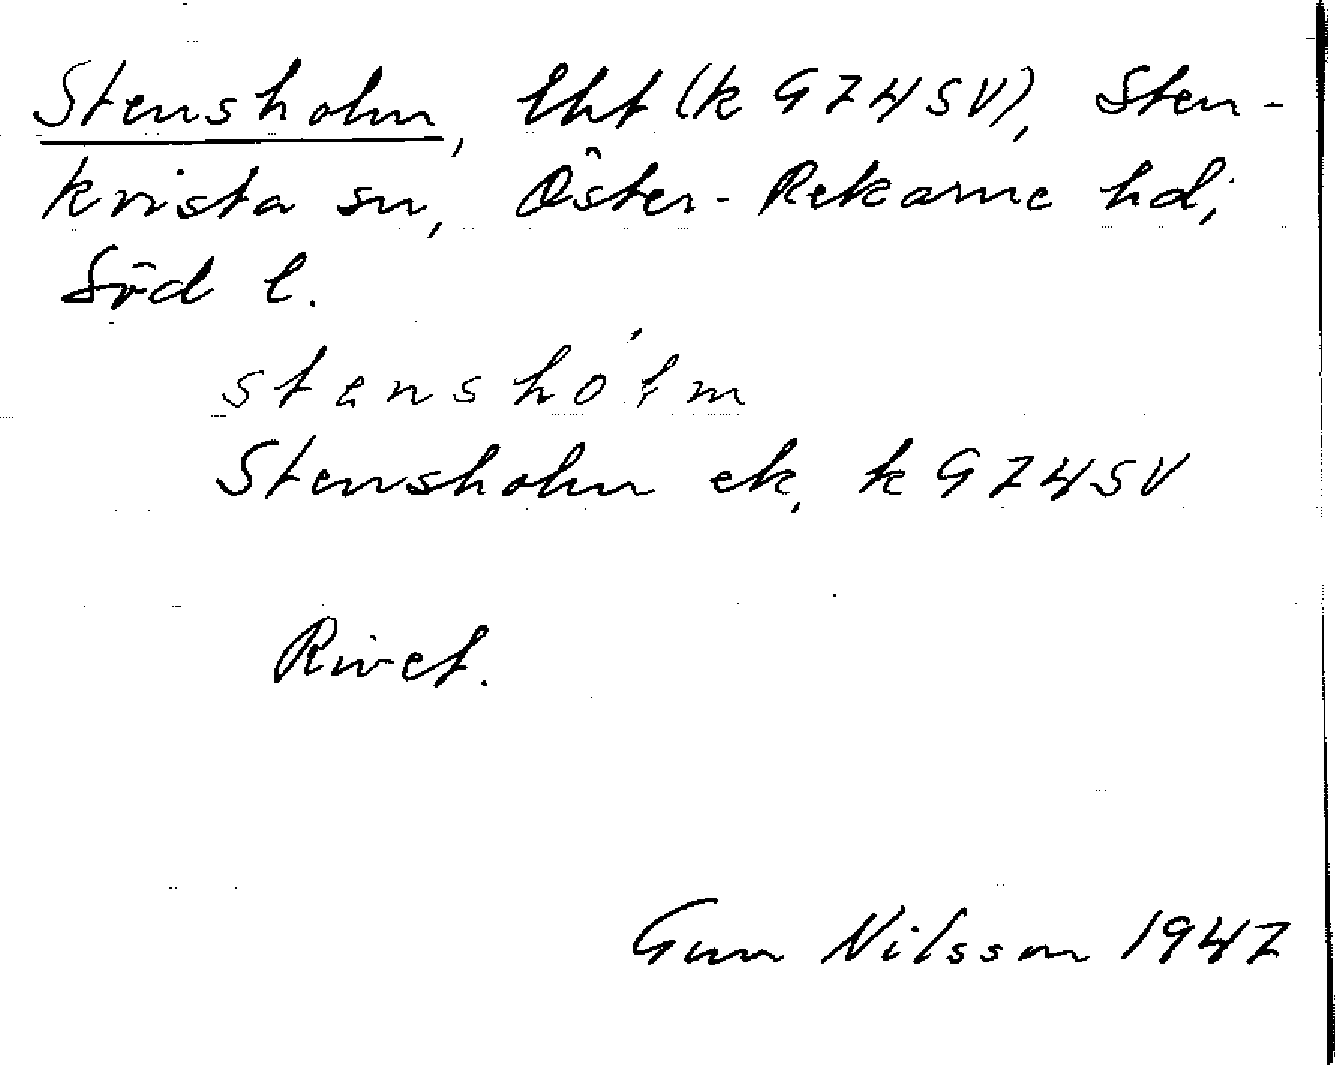 Stensholm, lht (k G74SV), Sten-
kvista sn, Öster-Rekarne hd,
Söd l.
stenshòlm
Stensholm ek, k G74SV
Rivet.
Gun Nilsson 1947